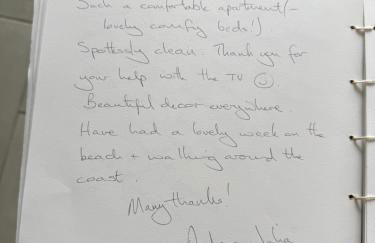 Such a comfortable apartment (-
lovely comfy beds!)
Spotlessly clean. Thank you for
your help with the TV ☺.
Beautiful decor everywhere.
Have had a lovely week on the
beach + walking around the
coast.
Many thanks!